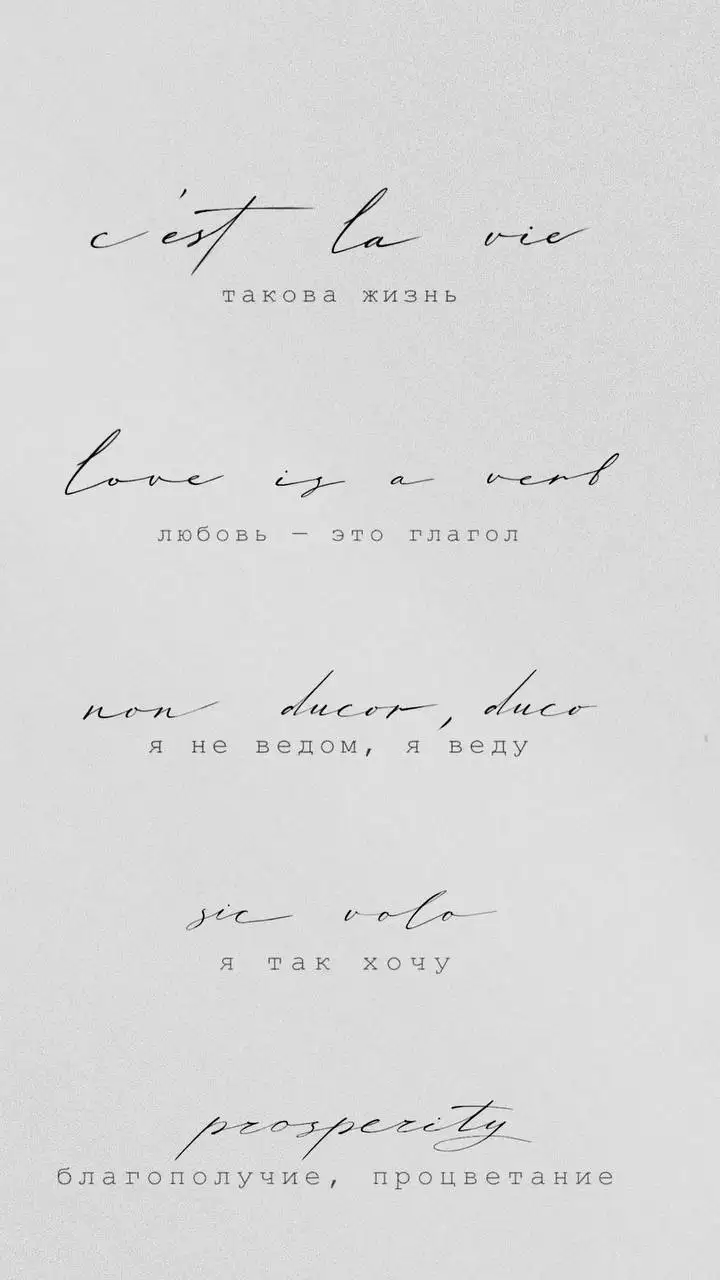 c'est la vie
такова жизнь
love is a verb
любовь — это глагол
non ducor, duco
я не ведом, я веду
sic volo
я так хочу
prosperity
благополучие, процветание